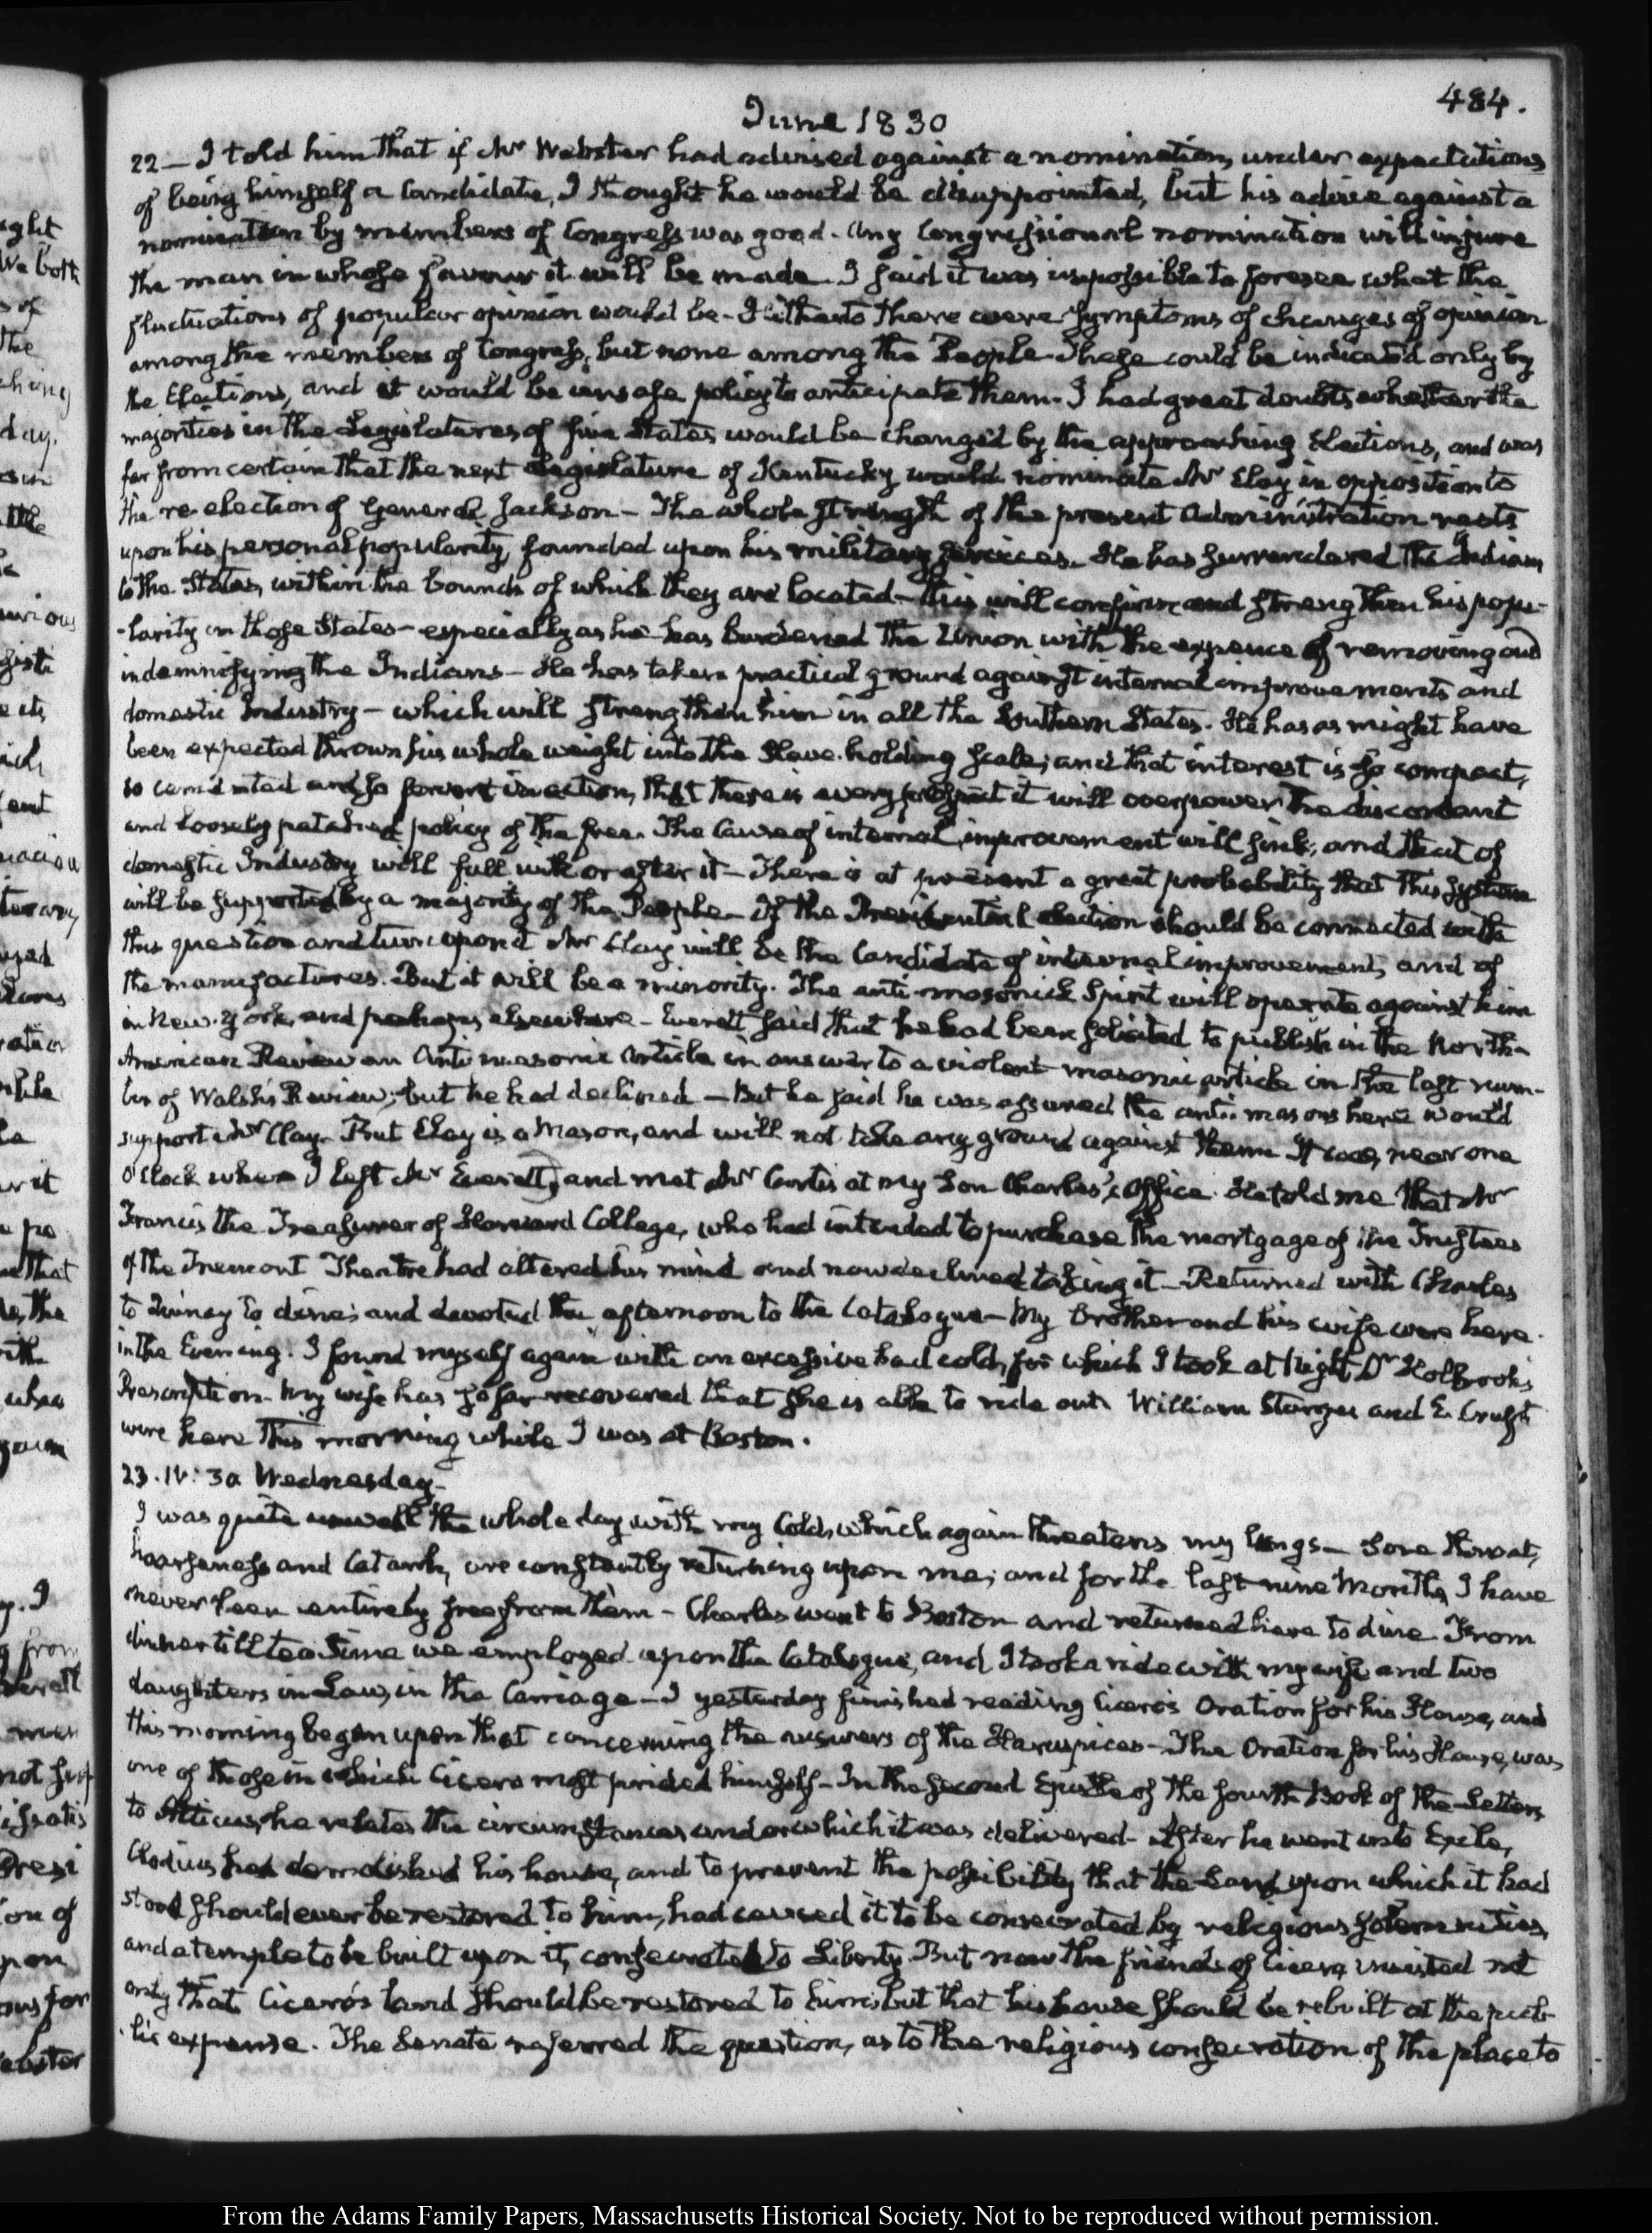 484.
June 1830
22 — I told him that if Mr Webster had advised against a nomination, under expectations
of being himself a Candidate, I thought he would be disappointed, but his advice against a
nomination by members of Congress was good. Any Congressional nomination will injure
the man in whose favour it will be made. I said it was impossible to foresee what the
fluctuations of popular opinion would be - Hitherto there were symptoms of changes of opinion
among the members of Congress, but none among the People. These could be indicated only by
the Elections, and it would be unsafe policy to anticipate them. I had great doubts whether the
majorities in the Legislatures of five States would be changed by the approaching Elections, and was
far from certain that the next Legislature of Kentucky would nominate Mr Clay in opposition to
the re-election of General Jackson - The whole strength of the present Administration rests
upon his personal popularity, founded upon his military services. He has surrendered the Indians
to the States, within the bounds of which they are located - this will confirm and strengthen his popu-
-larity in those States - especially as he has burdened the Union with the expence of removing and
indemnifying the Indians - He has taken practical ground against internal improvements and
domestic Industry - which will strengthen him in all the Southern States. He has as might have
been expected thrown his whole weight into the Slave-holding scale; and that interest is so compact,
so cemented and so fervent in action, that there is every prospect it will overpower the discordant
and loosely patched policy of the free. The Cause of internal improvement will sink; and that of
domestic Industry will fall with or after it - There is at present a great probability that this system
will be supported by a majority of the People - If the Presidential election should be connected with
this question and turn upon it Mr Clay will be the Candidate of internal improvement, and of
the manufactures. But it will be a minority. The anti-masonick Spirit will operate against him
in New-York, and perhaps elsewhere - Everett said that he had been solicited to publish in the North-
American Review an Anti masonic Article in answer to a violent masonic article in the last num-
ber of Walsh's Review; but he had declined — But he said he was assured the anti-masons here would
support Mr Clay. But Clay is a Mason, and will not take any ground against them. It was near one
O'Clock when I left Mr Everett, and met Mr Curtis at my Son Charles's Office. He told me that Mr
Francis the Treasurer of Harvard College, who had intended to purchase the mortgage of the Trustees
of the Tremont Theatre had altered his mind and now declined taking it - Returned with Charles
to Quincy to dine; and devoted the afternoon to the Catalogue - My Brother and his wife were here
in the Evening. I found myself again with an excessive bad cold, for which I took at Night Dr Holbrook's
Prescription - My wife has so far recovered that she is able to ride out. William and E. Cruft
were here this morning while I was at Boston.
23. IV: 30 Wednesday -
I was quite unwell the whole day with my Cold, which again threatens my lungs - Sore throat,
hoarseness and Catarrh, are constantly returning upon me; and for the last nine Months, I have
never been entirely free from them - Charles went to Boston and returned here to dine. From
dinner till tea time we employed upon the Catalogue, and I took a ride with my wife and two
daughters in Law, in the Carriage - I yesterday finished reading Cicero's Oration for his House, and
this morning began upon that concerning the answers of the Haruspices - The Oration for his House, was
one of those in which Cicero most prided himself - In the second Epistle of the fourth Book of the Letters
to Atticus, he relates the circumstances under which it was delivered - After he went into Exile,
Clodius had demolished his house, and to prevent the possibility that the Land upon which it had
stood should ever be restored to him, had caused it to be consecrated by religious solemnities,
and a temple to be built upon it, consecrated to Liberty. But now the friends of Cicero, insisted not
only that Cicero's land should be restored to him; but that his house should be rebuilt at the pub-
-lic expense. The Senate referred the question, as to the religious consecration of the place to
From the Adams Family Papers, Massachusetts Historical Society. Not to be reproduced without permission.